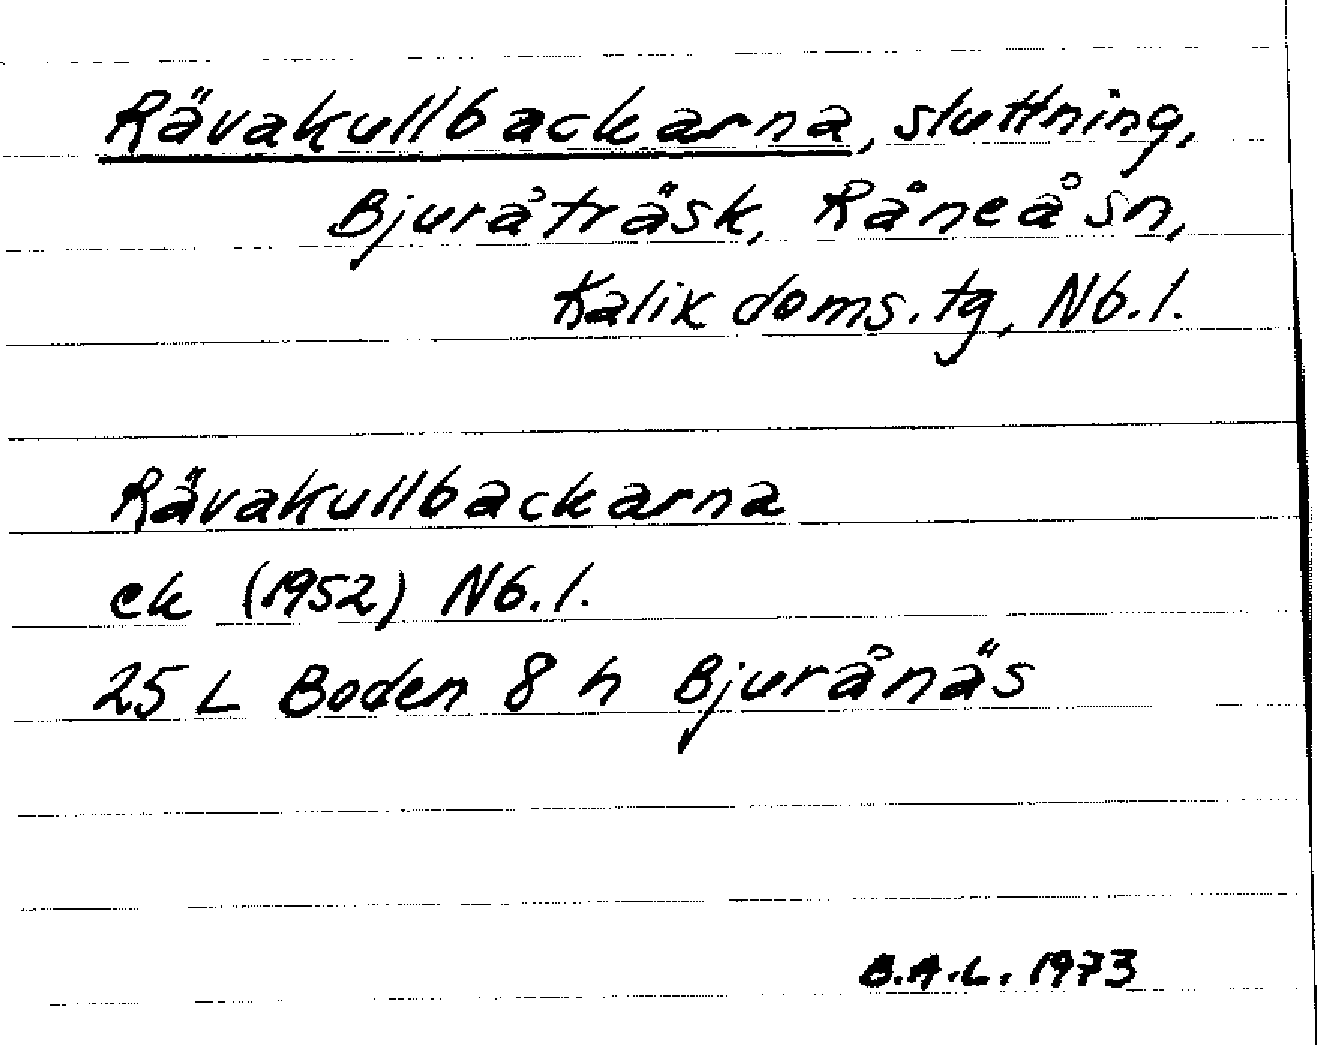 Rävakullbackarna, sluttning,
Bjuråträsk, Råneå sn,
Kalix doms.tg, Nb.l.
Rävakullbackarna
ek (1952) Nb.l.
25 L Boden 8 h Bjurånäs
B.A.L. 1973